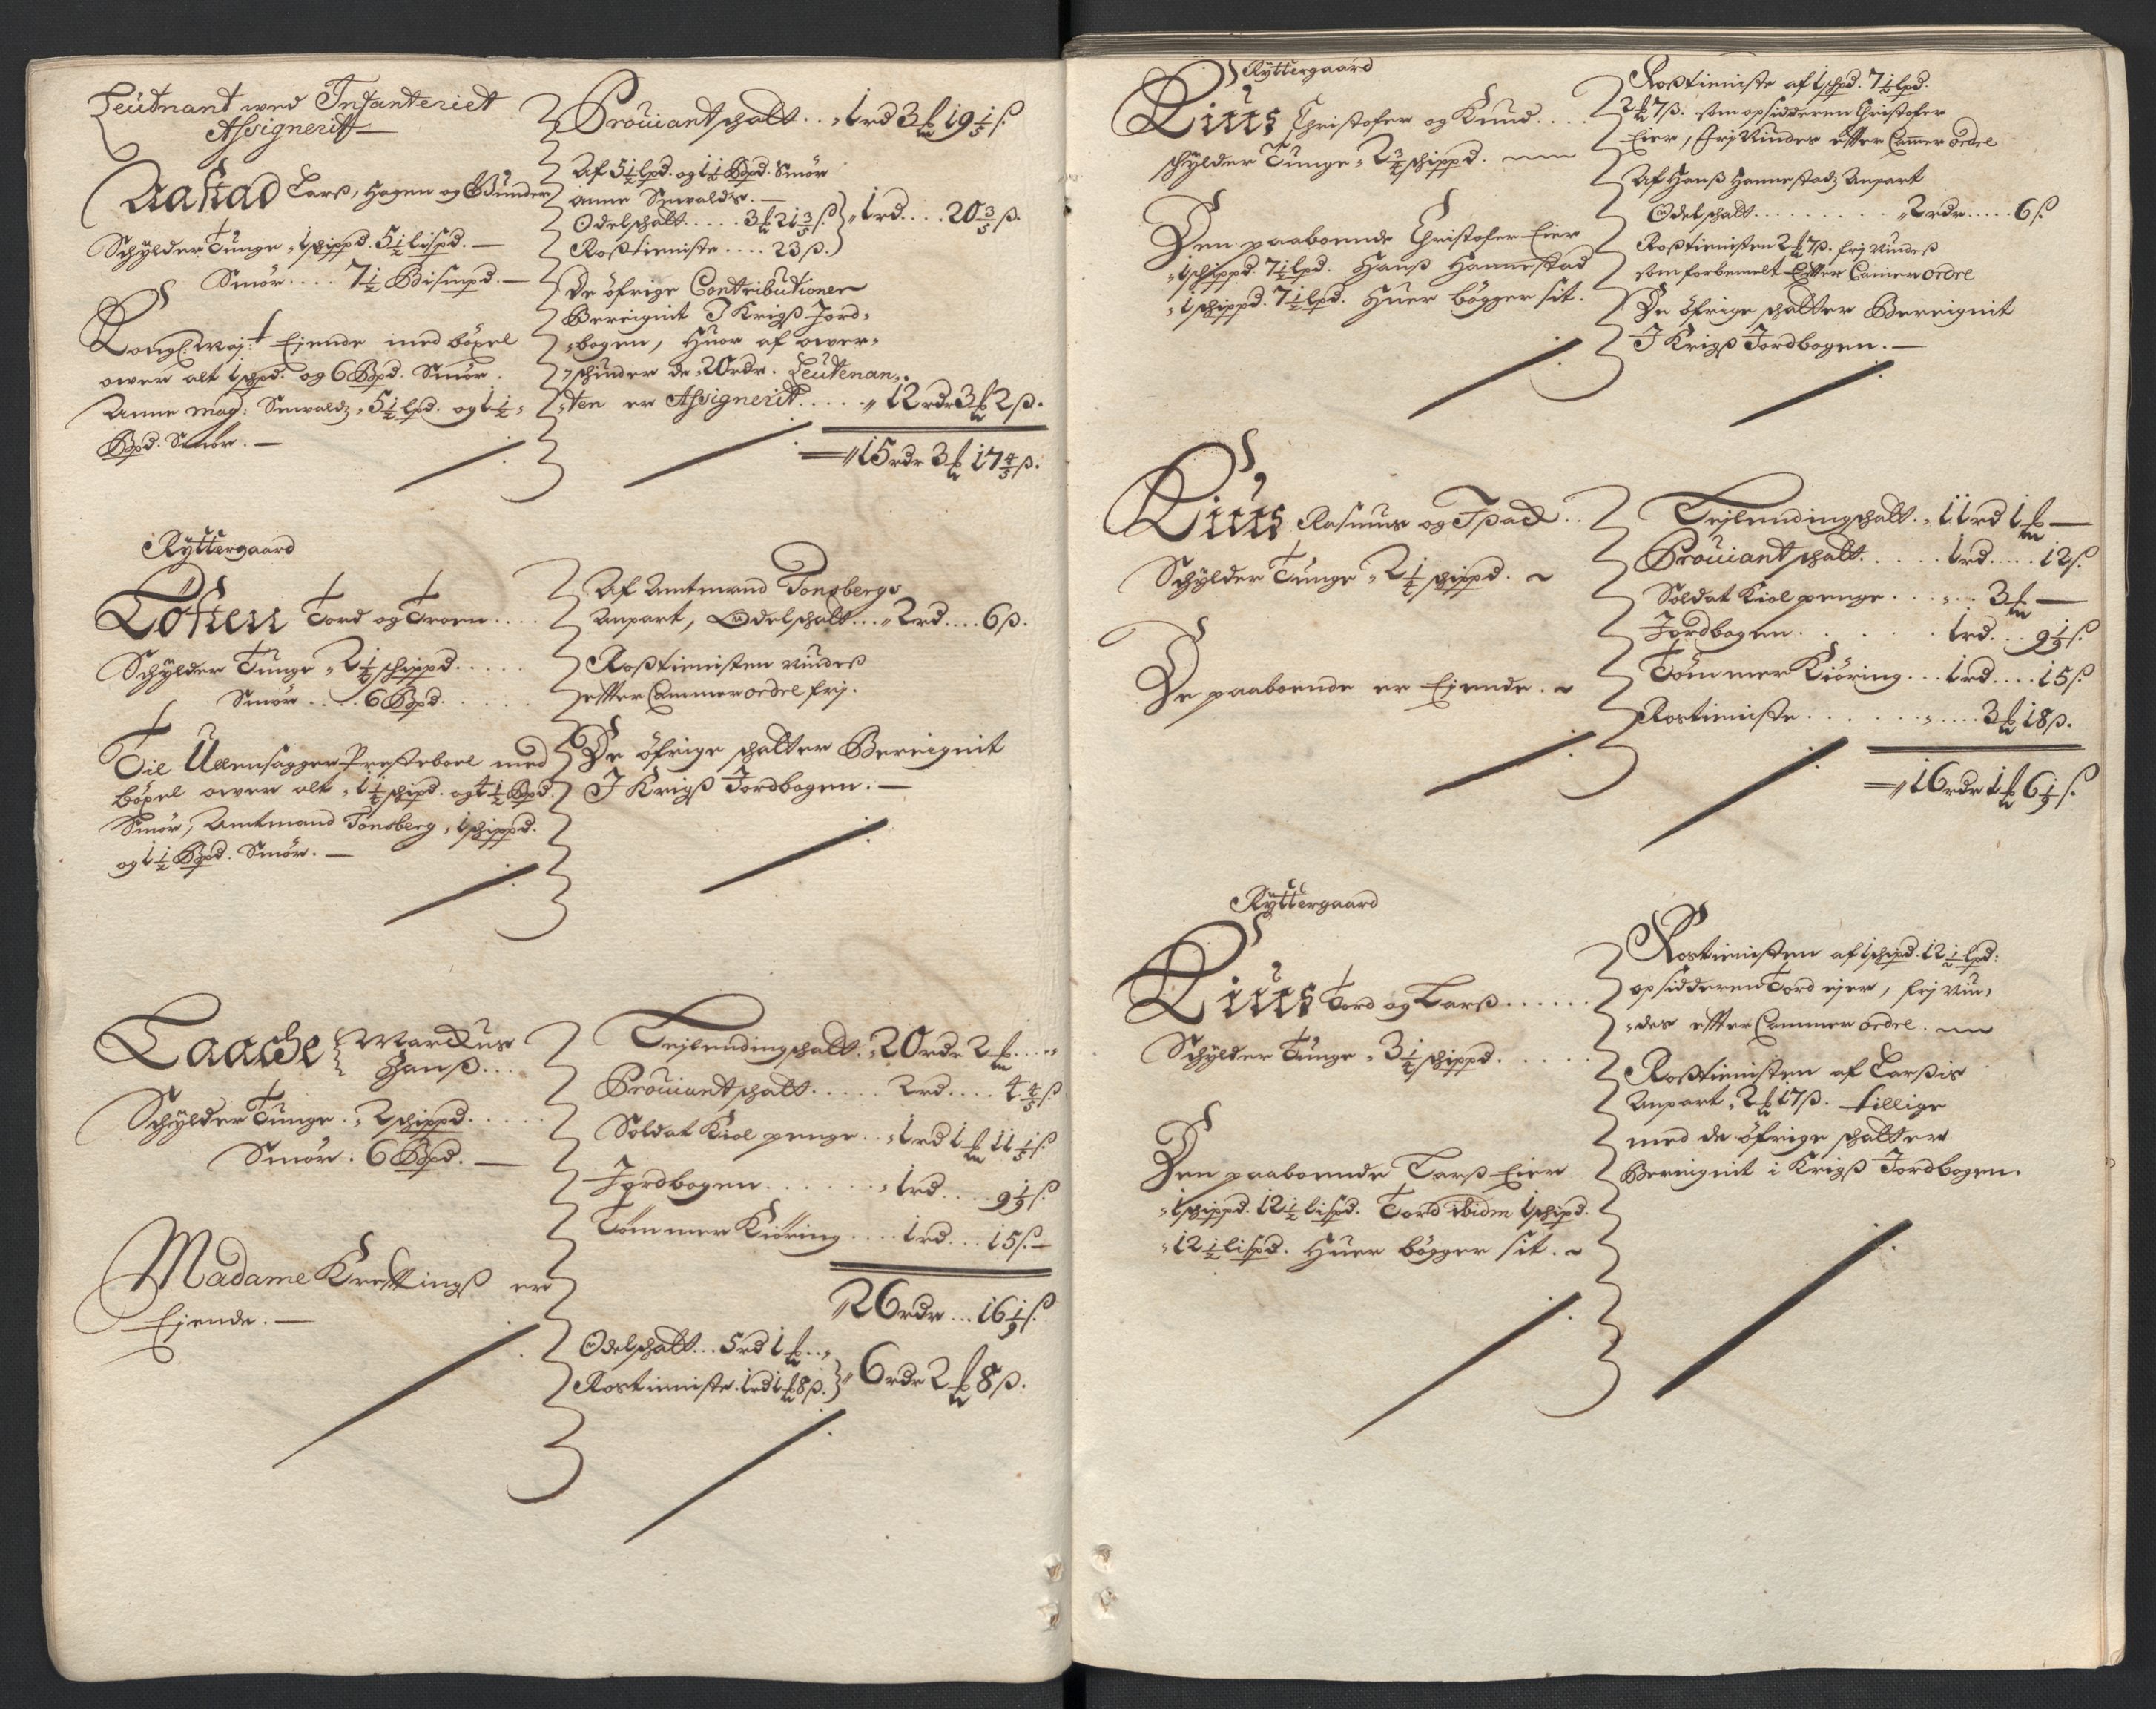 Leütnant wed Infanteriet
Assignerit —
Aastad Larß, Hagen og Gunder
Schÿlder Tunge „ 1 schippd. 5½ lispd. —
Smör .... 7½ Bismpd. —
Kongl: Maj:t Ejende med böxel
ower alt 1 schpd. og 6 Bpd. Smör.
Anne Mag: Sewaldz „ 5½ lpd. og 1½
Bpd. Smör. —
Prouiantschatt .. „ 1 rd 3 ℔ 19⅕ ß.
Af 5½ lpd. og 1½ Bpd. Smör
Anne Sewaldz. —
Odelschatt ..... 3 ℔ 21⅗ ß.
Roßtieniste .... 23 ß. } „ 1 rd .... 20⅗ ß.
De öfrige Contributioner
Bereignit I Krigß Jord-
bogen, Huor af ower-
schinder de „ 20 rdr. Leütenan-
ten er Assignerit ..... „ 12 rdr 3 ℔ 2 ß.
„ 15 rdr 3 ℔ 17⅘ ß.
Rÿttergaard
Löken Tord og Troen ....
Schÿlder Tunge „ 2¼ schippd. .....
Smör .... 6 Bpd. .....
Til Ullensagger Presteboel med
böxel ower alt „ 1¼ schipd. og 4½ Bpd.
Smör, Amtmand Tonsberg „ 1 schippd.
og 1½ Bpd. Smör. —
Af Amtmand Tonsbergs
Anpart, Odelschatt ... „ 2 rd .... 6 ß.
Roßtienisten vindes
efter Cammer ordel frj.
De öfrige schatter Bereignit
I Krigß Jordbogen. —
Laache { Marckus
Hanß ...
Schÿlder Tunge . „ 2 schippd. .....
Smör : 6 Bpd. —
Madame Krefftingß er
Ejende. —
Lejlendingschatt . „ 20 rdr 2 ℔ ... „
Prouiantschatt ..... 2 rd .... 4⅘ ß
Soldat Kiol penge .. „ 1 rd 1 ℔ 11⅕ ß
Jordbogen ....... „ 1 rd .... 9⅑ ß.
Tömmer Kiöring .... 1 rd ... 15 ß. —
„ 26 rdr ... 16⅑ ß.
Odelschatt ... 5 rd 1 ℔ .. „
Rostieniste . 1 rd 1 ℔ 8 ß. } „ 6 rdr 2 ℔ 8 ß.
Rÿttergaard
Riis Christofer og Knud ....
Schÿlder Tunge „ 2¾ schippd.
Den paaboende Christofer Eier
„ 1 schippd. 7½ lpd. Hanß Hannestad
„ 1 schippd. 7½ lpd. Huer bögger sit.
Roßtieniste af 1 schpd. 7½ lpd.
2 ℔ 7 ß. som opsidderen Christofer
Eier, frj Vindes efter Camer ordel
Af Hanß Hannestadz Anpart
Odelschatt ......... „ 2 rdr ..... 6 ß.
Roßtienisten 2 ℔ 7 ß. frj Vindeß
som forbemelt Efter Camer ordel
De öfrige schatter Bereignit
I Krigß Jordbogen. —
Riis Rasmus og
Schÿlder Tunge „ 2¼ schippd.
De paaboende er Ejende.
Lejlendingschatt . „ 11 rd 1 ℔ —
Prouiantschatt ..... 1 rd ..... 12 ß.
Soldat Kiol penge ...... 3 ℔ —
Jordbogen ...... 1 rd ... 9⅑ ß.
Tömmer Kiöring ... 1 rd .... 15 ß.
Rostieniste ...... „ .... 3 ℔ 18 ß.
„ 16 rdr 1 ℔ 6⅑ ß.
Rÿttergaard
Riis Tord og Larß ......
Schÿlder Tunge „ 3¼ schippd. ....
Den paaboende Larß Eier
„ 1 schippd. 12½ lispd. Tord ibidm 1 schipd.
„ 12½ lispd. Huer bögger sit.
Rostienisten af 1 schipd. 12½ lpd:
opsidderen Tord ejer, frj vin-
des efter Cammer ordel.
Roßtienisten af Larßis
Anpart „ 2 ℔ 17 ß. tillige
med de öfrige schatter
Bereignit i Krigß Jordbogen.